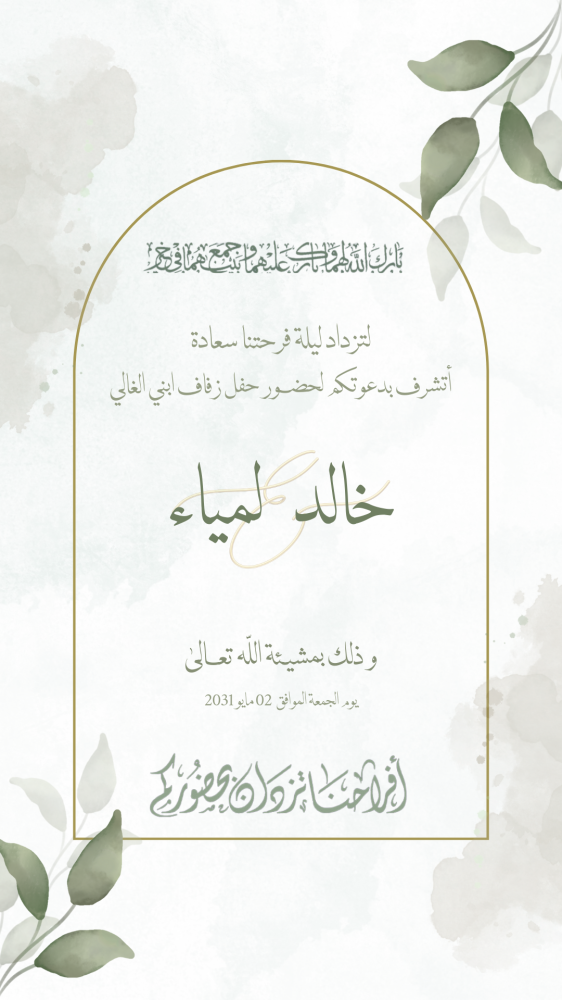 بارك الله لهما وبارك عليهما وجمع بينهما في خير
لتزداد ليلة فرحتنا سعادة
أتشرف بدعوتكم لحضور حفل زفاف ابني الغالي
خالد & لمياء
و ذلك بمشيئة الله تعالى
يوم الجمعة الموافق 02 مايو 2031
أفراحنا تزدان بحضوركم